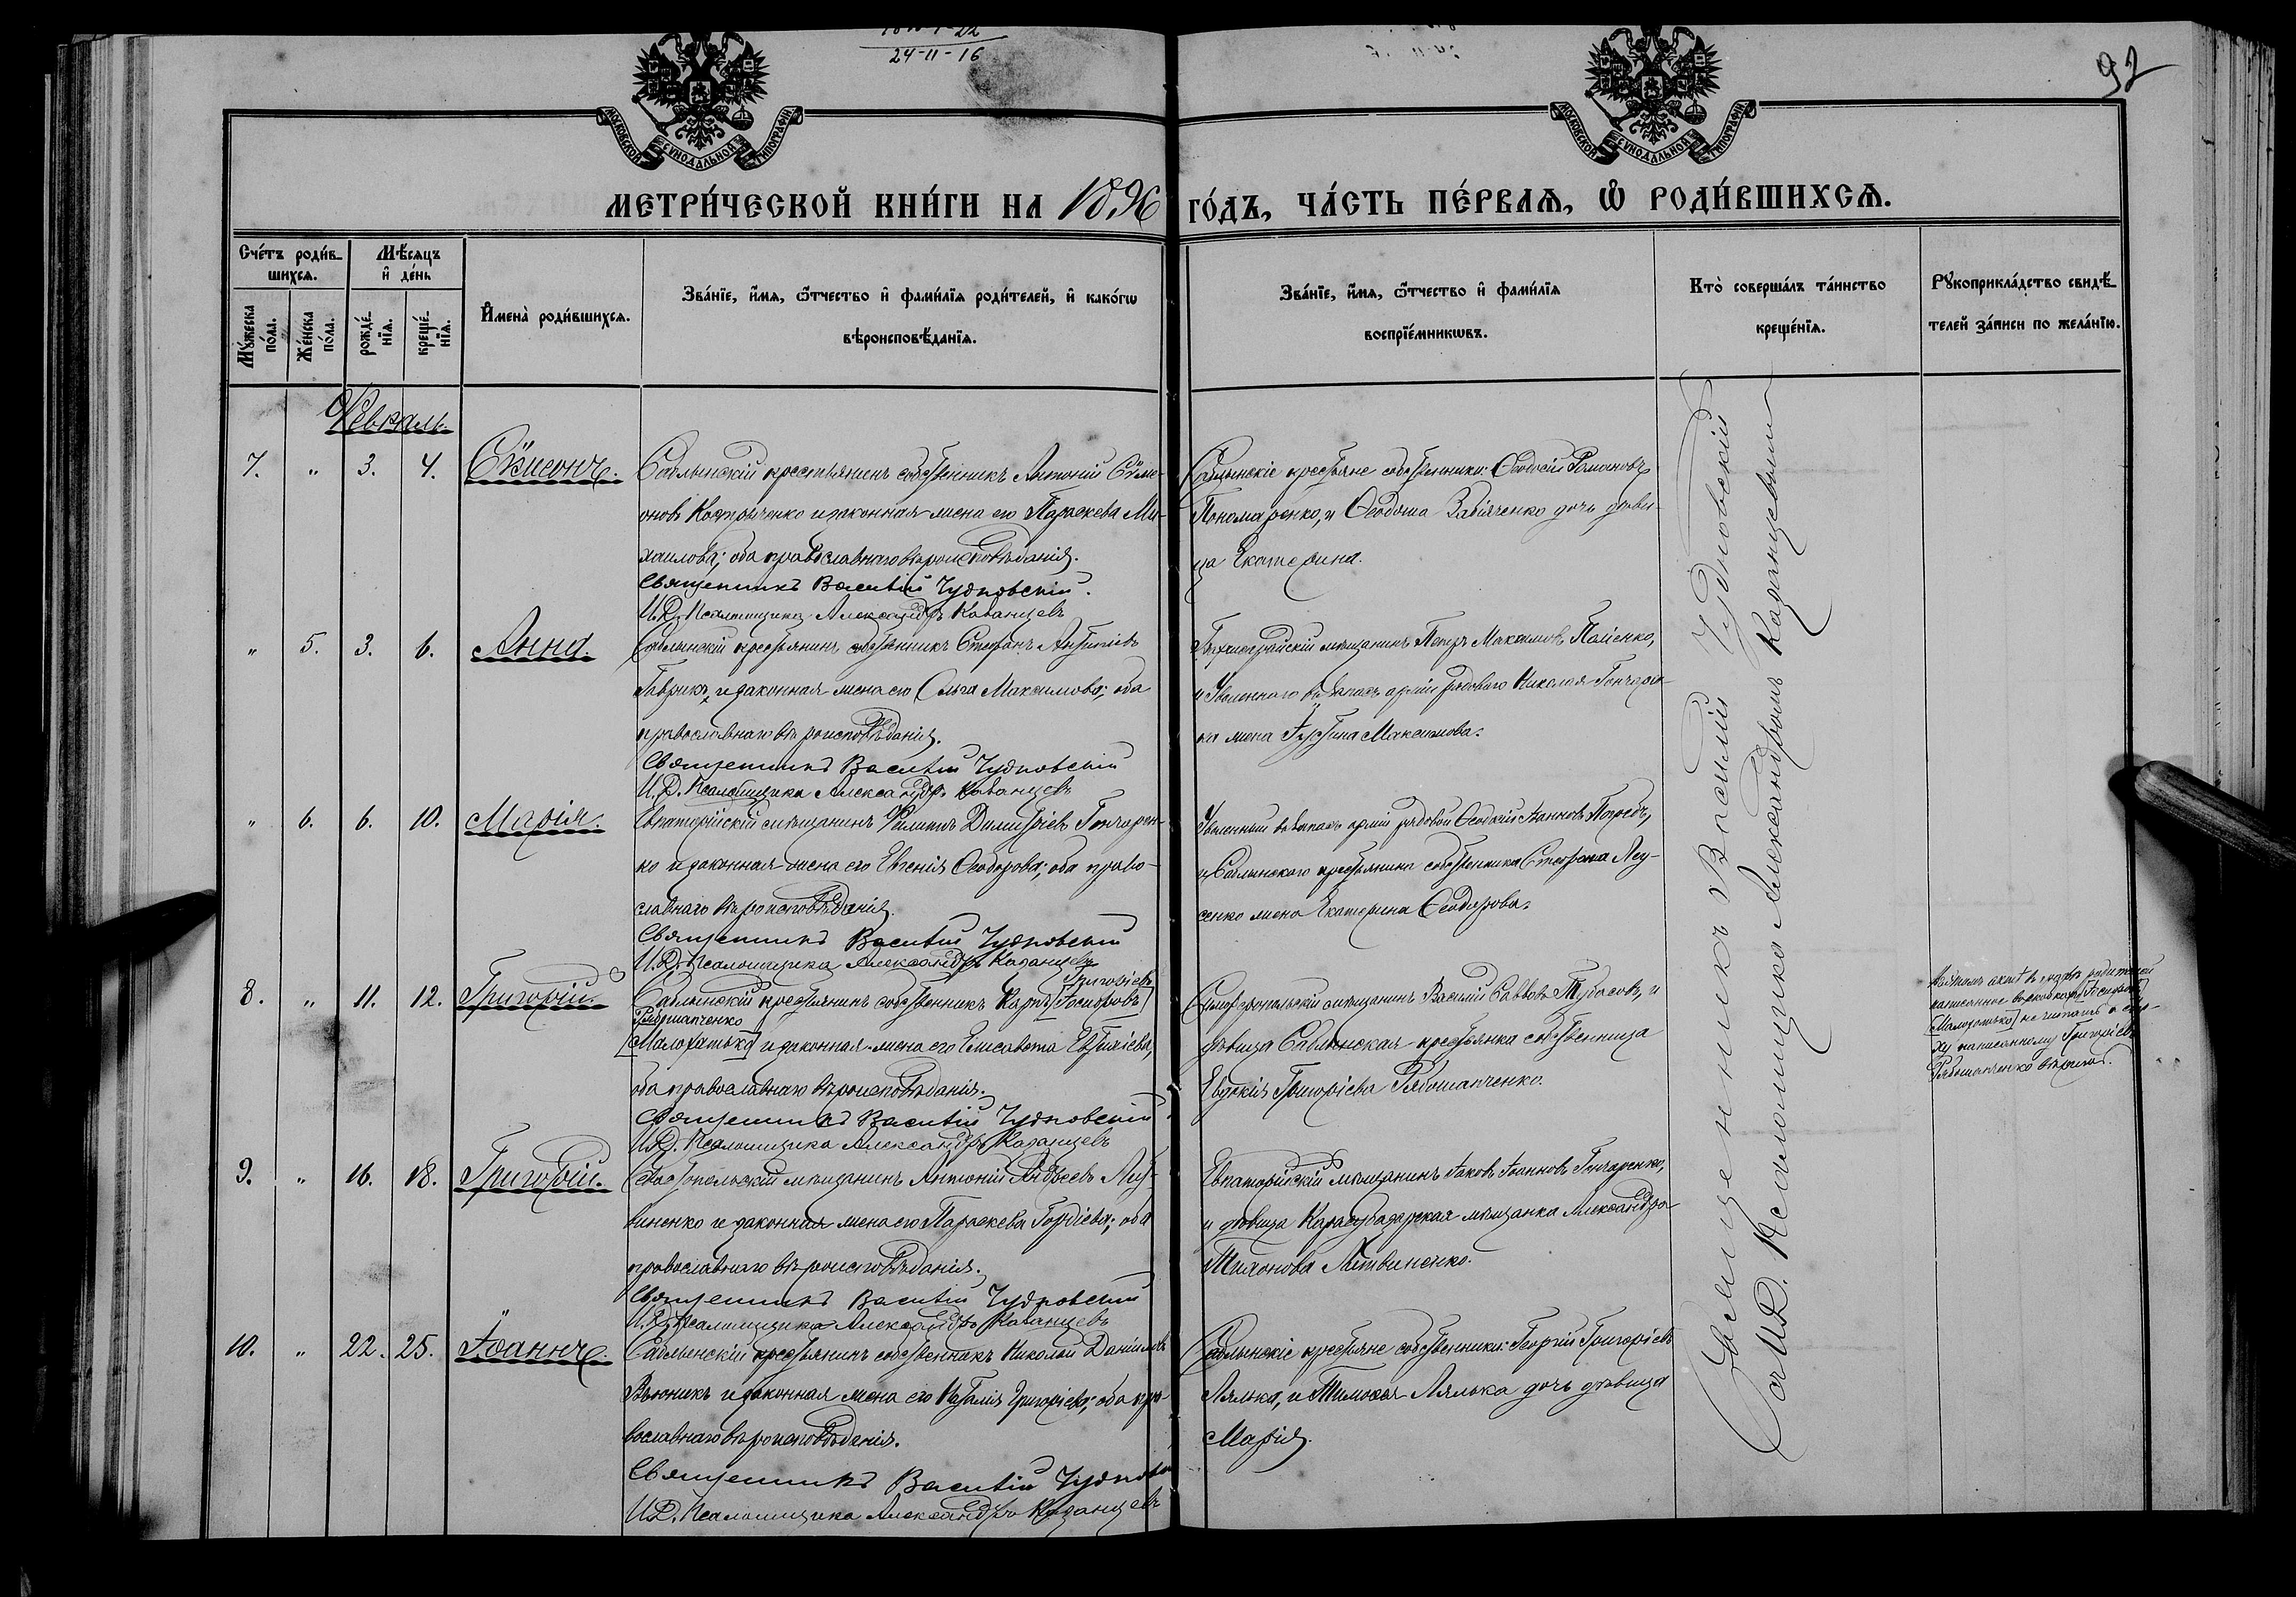 24-11-16
92
МОСКОВСКОЙ СѴНОДАЛЬНОЙ ТИПОГРАФІИ
МОСКОВСКОЙ СѴНОДАЛЬНОЙ ТИПОГРАФІИ
МЕТРИ́ЧЕСКОЙ КНИ́ГИ НА 1896 ГО́ДЪ, ЧА́СТЬ ПЕ́РВАѦ, Ѡ РОДИ́ВШИХСѦ.
Сче́тъ роди́в-
шихсѧ.
Мѣ́сяцъ
и де́нь
Мꙋжеска
по́ла.
Же́нска
по́ла.
рожде́-
нїѧ.
креще́-
нїѧ.
Имена̀ роди́вшихсѧ.
Зва́нїе, и́мѧ, ѻ́тчество и фами́лїѧ роди́телей, и како́гѡ
вѣроисповѣ́данїѧ.
Зва́нїе, и́мѧ, ѻ́тчество и фами́лїѧ
воспрїе́мникѡвъ.
Кто̀ соверша́лъ та́инство
креще́нїѧ.
Рꙋкоприкла́дство свидѣ́-
телей за́писи по жела́нїю.
Февраль.
7. " 3. 4. Сѵмеонъ. Саблынскій крестьянинъ собственникъ Антоній Сѵме-
оновъ и законная жена его Параскева Ми-
хаилова; оба православнаго вѣроисповѣданія.
Священникъ Василій Чудновскій.
И.Д. Псаломщика Александръ Казанцевъ
Саблынскіе крестьяне собственники: Ѳеодосій Романовъ
Пономаренко, и Ѳеодота дочь дѣви-
ца Екатерина.
" 5. 3. 6. Анна. Саблынскій крестьянинъ собственникъ Стефанъ
Гаврикъ, и законная жена его Ольга Максимова; оба
православнаго вѣроисповѣданія.
Священникъ Василій Чудновскій
И.Д. Псаломщика Александръ Казанцевъ
мѣщанинъ Петръ Максимовъ
и Уволеннаго въ запасъ арміи рядоваго Николая Гончарен-
ка жена Іустина Максимова.
" 6. 6. 10. Марія. Евпаторійскій мѣщанинъ Филиппъ Димитріевъ Гончарен-
ко и законная жена его Евгенія Ѳеодорова; оба право-
славнаго вѣроисповѣданія.
Священникъ Василій Чудновскій
И.Д. Псаломщика Александръ Казанцевъ
Уволенный въ запасъ арміи рядовой Ѳеодосій Іоанновъ
и Саблынскаго крестьянина собственника Стефана Лсу-
сенко жена Екатерина Ѳеодорова.
8. " 11. 12. Григорій. Саблынскій крестьянинъ собственникъ Карпъ [Никифоровъ]
Григорьевъ
Рябошапченко
[Малохатько] и законная жена его Елисавета Евѳиміева,
оба православнаго вѣроисповѣданія.
Священникъ Василій Чудновскій
И.Д. Псаломщика Александръ Казанцевъ
Симферопольскій мѣщанинъ Василій Савовъ Тубасовъ, и
дѣвица Саблынская крестьянка собственница
Евдокія Григоріева Рябошапченко.
написанное въ скобкахъ
[Малохатько] не читать а свер-
ху написанному Григоріевъ
Рябошапченко вѣрить.
9. " 16. 18. Григорій. Севастопольскій мѣщанинъ Антоній Андреевъ Лит-
виненко и законная жена его Параскева Гордіева; оба
православнаго вѣроисповѣданія.
Священникъ Василій Чудновскій
И.Д. Псаломщика Александръ Казанцевъ
Евпаторійскій мѣщанинъ Іаковъ Іоанновъ Гончаренко,
и дѣвица Карасубазарская мѣщанка Александра
Тихонова Литвиненко.
10. " 22. 25. Іоаннъ. Саблынскій крестьянинъ собственникъ Николай Даніиловъ
Вьюникъ и законная жена его Наталія Григоріева; оба пра-
вославнаго вѣроисповѣданія.
Священникъ Василій Чудновскій
И.Д. Псаломщика Александръ Казанцевъ
Саблынскіе крестьяне собственники: Георгій Григоріевъ
Лялька, и Тимоѳея Лялька дочь дѣвица
Марія.
Священникъ Василій Чудновскій
съ И.Д. Псаломщика Александромъ Казанцевымъ